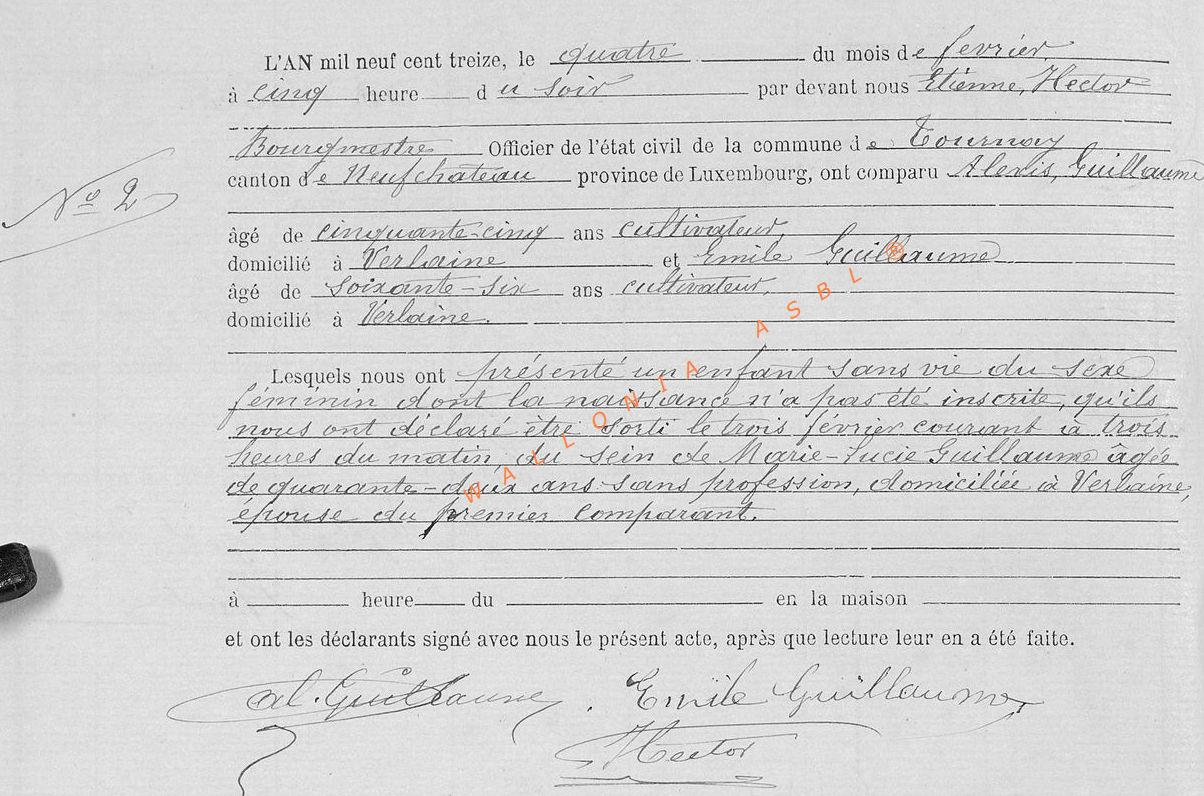 L'AN mil neuf cent treize, le quatre du mois de février,
à cinq heure du soir par devant nous Etienne, Hector
Bourgmestre Officier de l'état civil de la commune de Tournay
canton de Neufchateau province de Luxembourg, ont comparu Alexis, Guillaume
N° 2
âgé de cinquante-cinq ans cultivateur,
domicilié à Verlaine et Emile Guillaume
âgé de soixante-six ans cultivateur,
domicilié à Verlaine.
Lesquels nous ont présenté un enfant sans vie du sexe
féminin dont la naissance n'a pas été inscrite, qu'ils
nous ont déclaré être sorti le trois février courant à trois
heures du matin, du sein de Marie-Lucie Guillaume âgée
de quarante-deux ans sans profession, domiciliée à Verlaine,
épouse du premier comparant.
à heure du en la maison
et ont les déclarants signé avec nous le présent acte, après que lecture leur en a été faite.
al. Guillaume. Emile Guillaume
Hector
WALLONIA ASBL ®